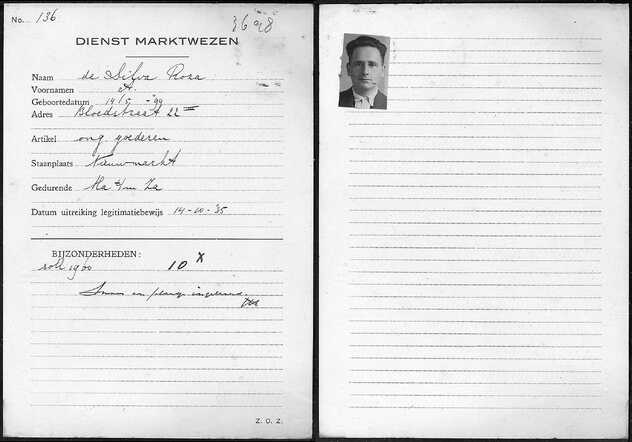 No. 136
3698
DIENST MARKTWEZEN
Naam de Silva Rosa
Voornamen A.
Geboortedatum 14/5 - 99
Adres Bloedstraat 22 III
Artikel ong. goederen
Staanplaats Nieuwmarkt
Gedurende Ma t/m Za
Datum uitreiking legitimatiebewijs 14-10-'35
BIJZONDERHEDEN:
10 X
en
Z. O. Z.